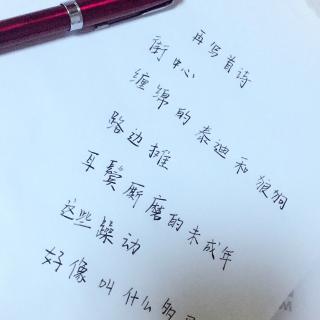 再写首诗
街中心
缠绵的泰迪和狼狗
路边摊
耳鬓厮磨的未成年
这些躁动
好像叫什么的